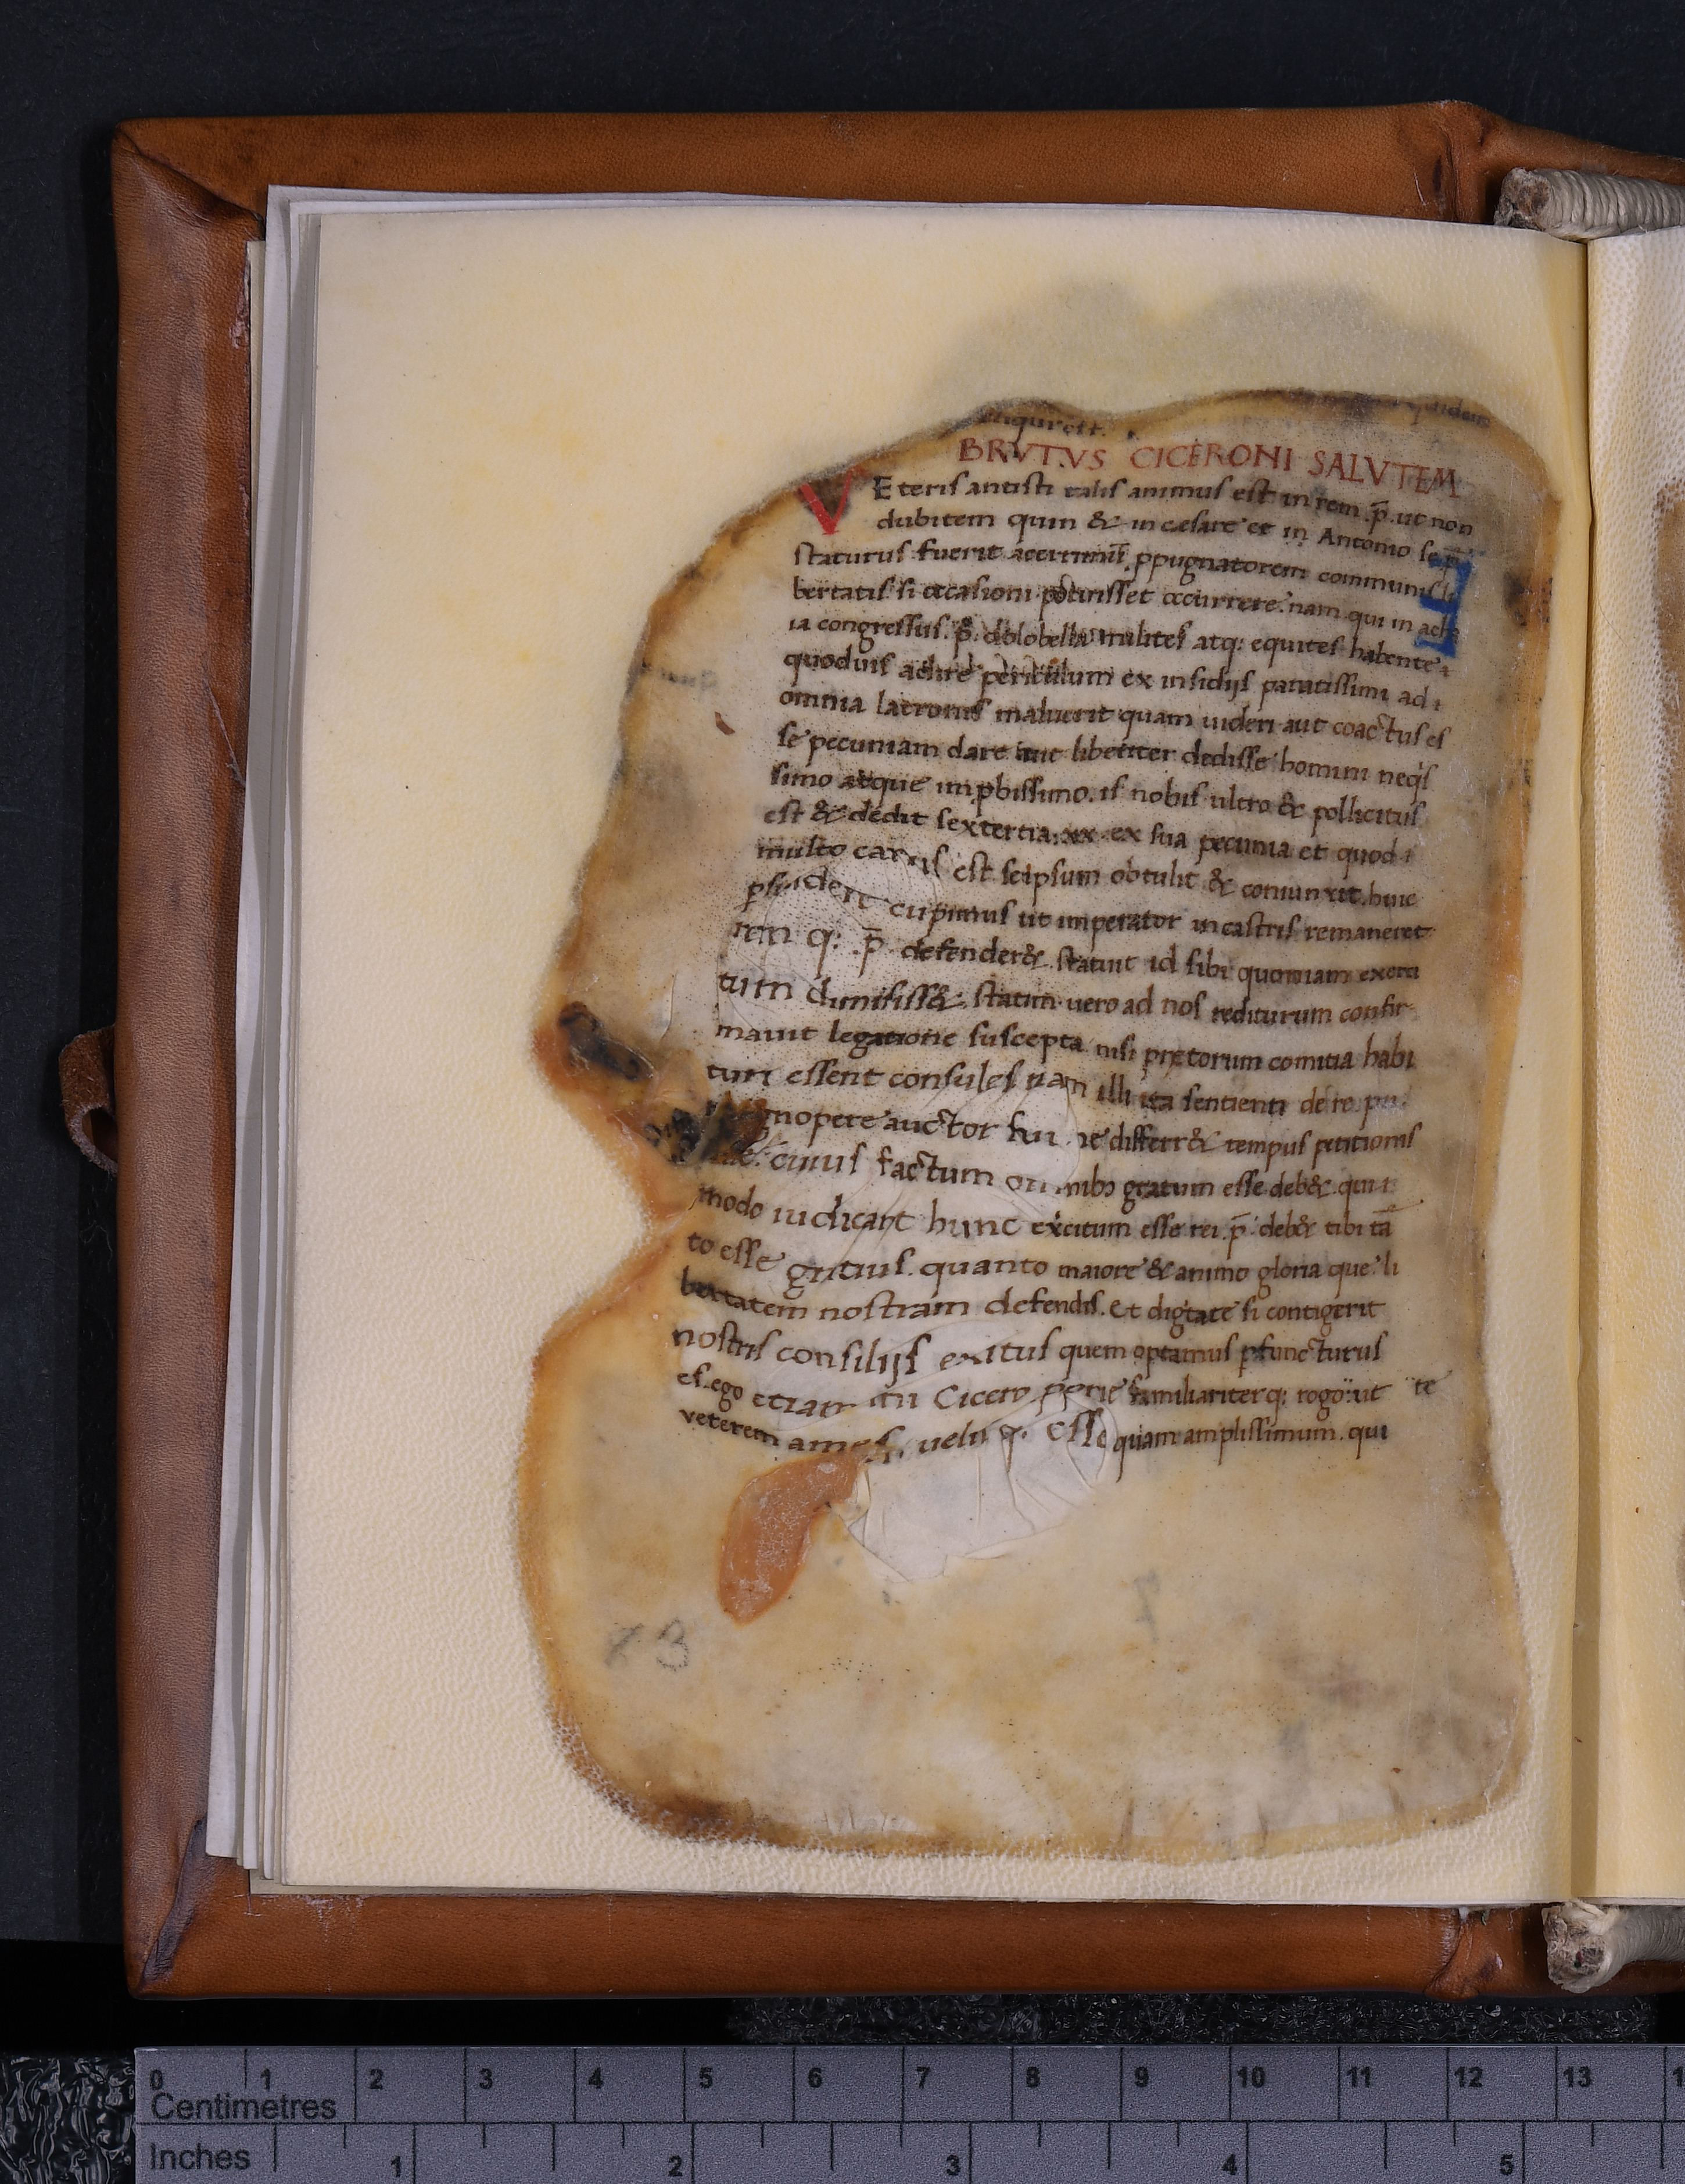 BRVTVS CICERONI SALVTEM
VEteris antisti talis animus est in rem .p̄. ut non
dubitem quin & in cesare et in Antonio se p̄
staturus fuerit acerrimū ꝓpugnatorem communis li
bertatis si occasioni potuisset occurrere. nam qui in acha
ia congressus .p̄. dolobella milites atq: equites habente
quoduis adire periculum ex insidijs paratissimi ad
omnia latronis maluerit quam uideri aut coactus es
se pecuniam dare aut libenter dedisse homini neq̇s
simo atque imꝓbissimo. is nobis ultro & pollicitus
est & dedit sextertia .xx. ex sua pecunia et quod
multo carius est seipsum obtulit & coniunxit. huic
cupimus ut imperator in castris remaneret
rem q: .p̄. defender&. statuit id sibi quoniam exerci
tum dimisiss&. statim uero ad nos rediturum confir
mauit legatione suscepta nisi pretorum comitia habi
turi essent consules nam illi ita sentienti de re pu
nopere auctor fui ne differr& tempus petitionis
cuius factum omnibꝫ gratum esse deb& qui
modo iudicant hunc excitum esse rei .p̄. deb& tibi tā
to esse gratius. quanto maiore & animo gloria que li
bertatem nostram defendis. Et digtate si contigerit
nostris consilijs exitus quem optamus ꝑfuncturus
es. ego etiam Cicero familiariter q: rogo ut te
veterem ames. uelis q: esse quam amplissimum. qui
83